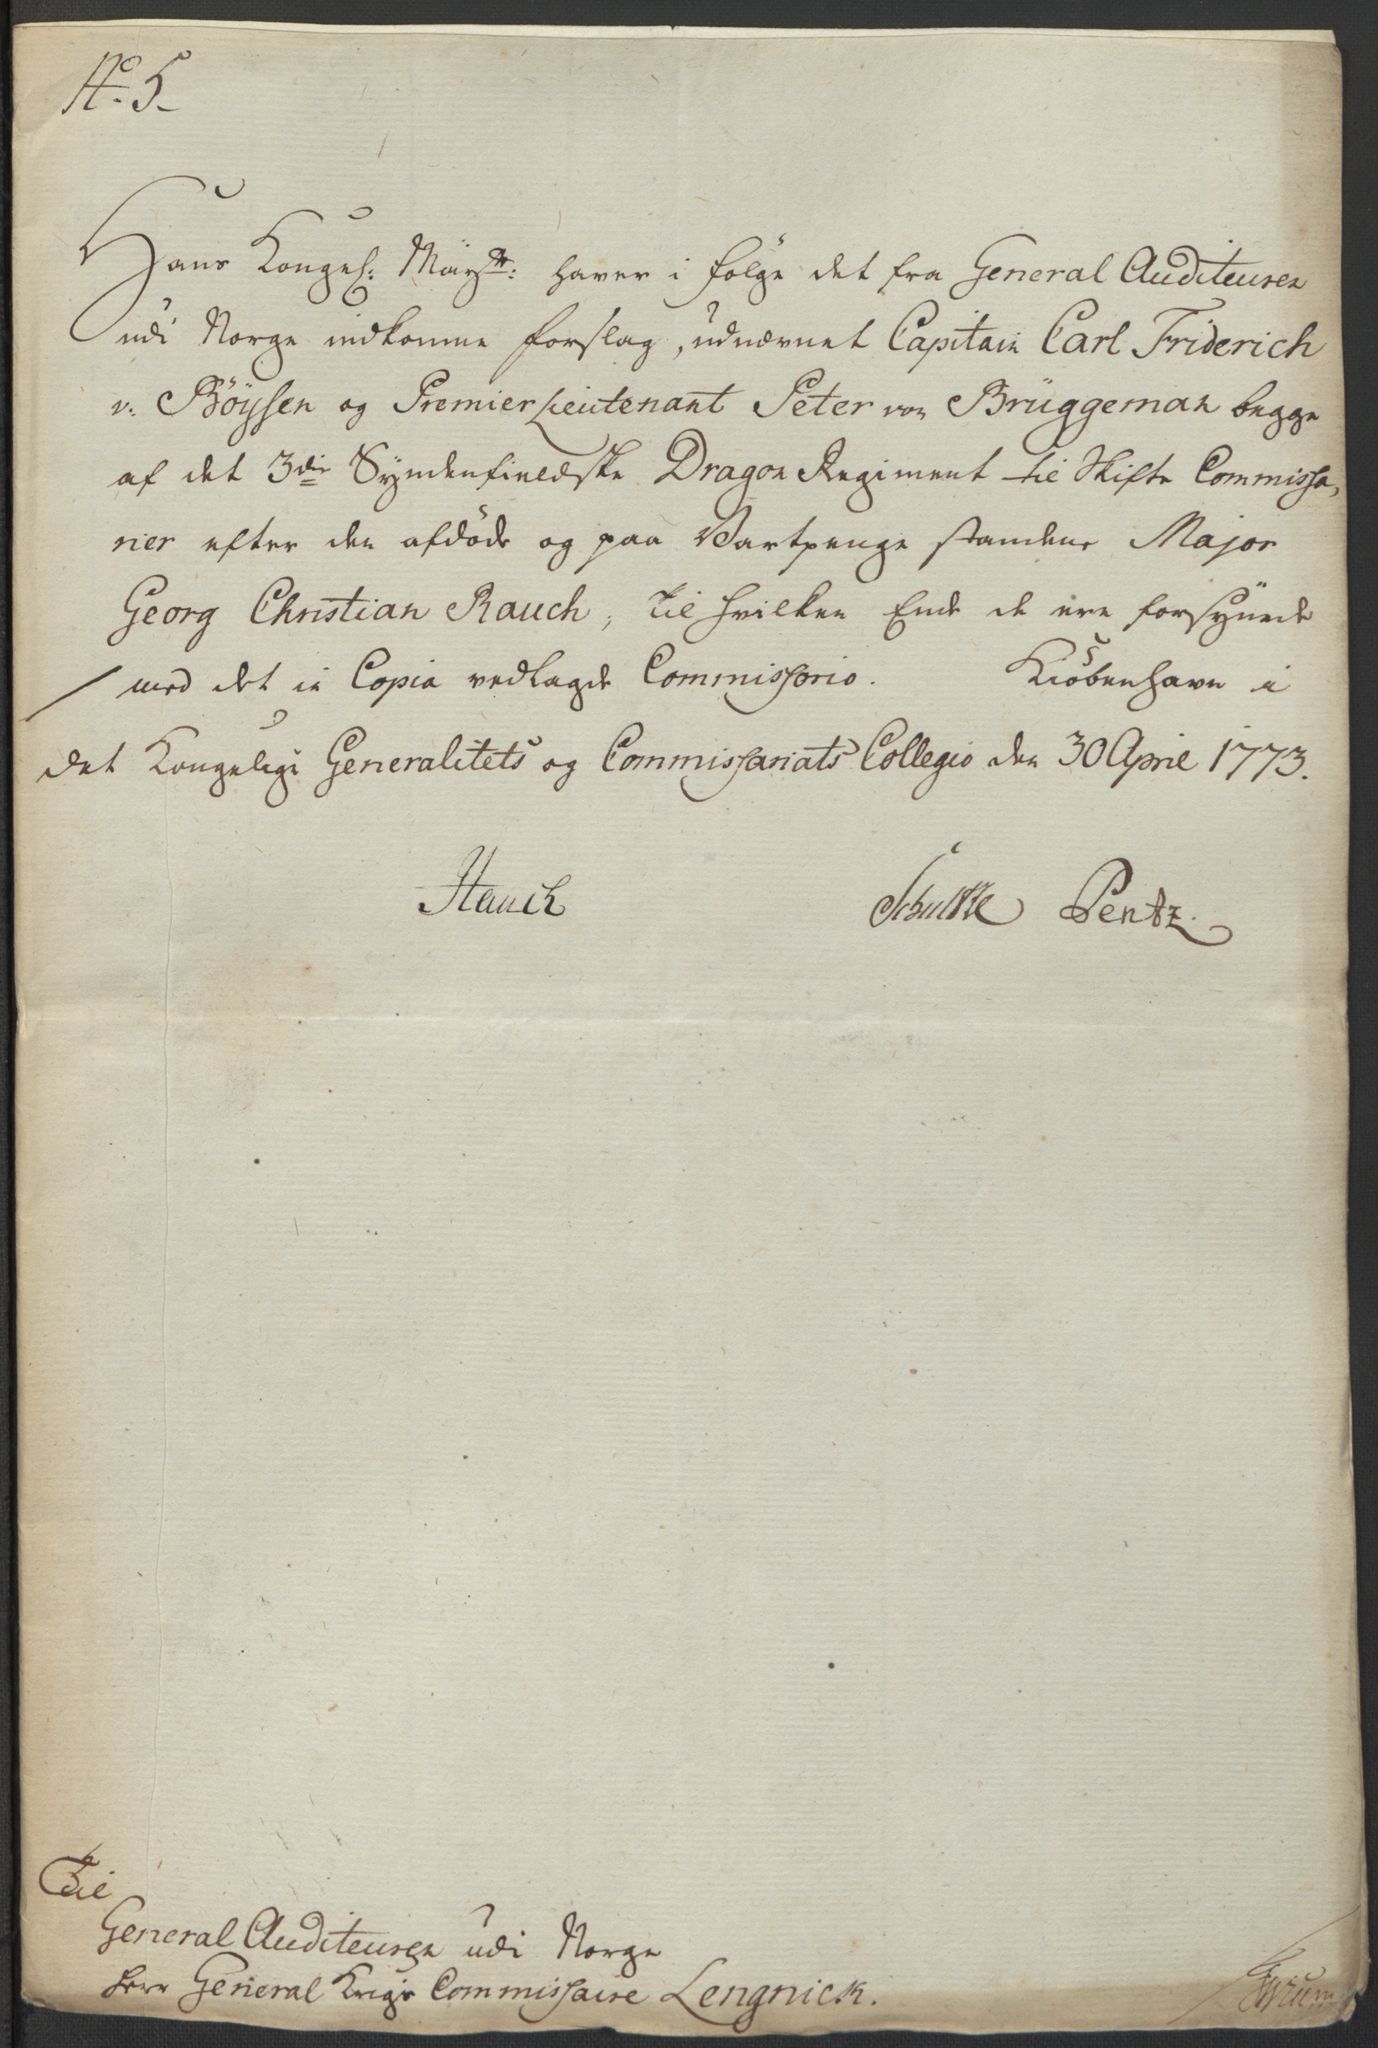 No. 5
Hans Kongel: Mayst: haver i følge det fra General Auditeuren
udi Norge indkomne forslag, udnævnet Capitain Carl Friderich
v: Böysen og Premier Lieutenant Peter von Brüggeman begge
af det 3die Syndenfieldske Dragon Regiment til Skifte Commissa,
rier efter den afdöde og paa Vartpenge staaende Major
Georg Christian Rauch, til hvilken Ende de ere forsynede
/ med det in Copia vedlagde Commissorio. Kiöbenhavn i
det Kongelige Generalitets og Commissariats Collegio den 30 April 1773.
Hauch Schultze Pentz.
Til
General Auditeuren udi Norge
Herr General Krigs Commissaire Lengnick.